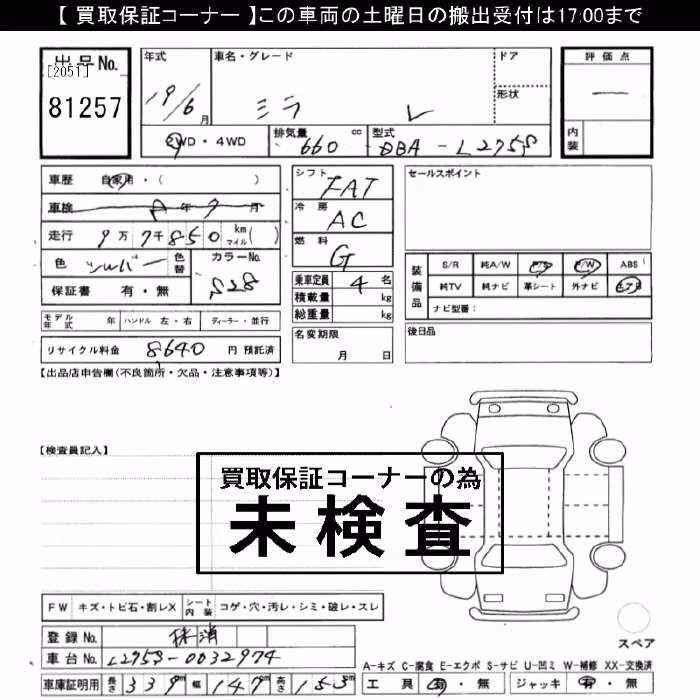 【 買取保証コーナー 】この車両の土曜日の搬出受付は17:00まで
出品No. 年式 車名・グレード ドア 評価点
[2051]
81257 19/6月 ミラ L 形状 —
②WD・4WD 排気量 660 cc 型式 DBA-L275S 内装
車歴 自家用・( ) シフト FAT セールスポイント
車検 年 月 冷房 AC
走行 9万7千850 km マイル( ) 燃料 G
色 シルバー 色替 カラーNo. S28
保証書 有・無
乗車定員 4 名
積載量 kg
総重量 kg
装備品 S/R 純A/W P/S P/W ABS
純TV 純ナビ 革シート 外ナビ エアB
ナビ型番:
モデル年式 年 ハンドル 左・右 ディーラー・並行 名変期限 月 日 後日品
リサイクル料金 8640 円 預託済
【出品店申告欄(不良箇所・欠品・注意事項等)】
【検査員記入】
買取保証コーナーの為
未検査
FW キズ・トビ石・割レX シート内装 コゲ・穴・汚レ・シミ・破レ・スレ
スペア
登録No. 抹消
車台No. L275S-0032974
A-キズ C-腐食 E-エクボ S-サビ U-凹ミ W-補修 XX-交換済
車庫証明用 長さ 339 幅 147 高さ 153 工具 有・無 ジャッキ 有・無